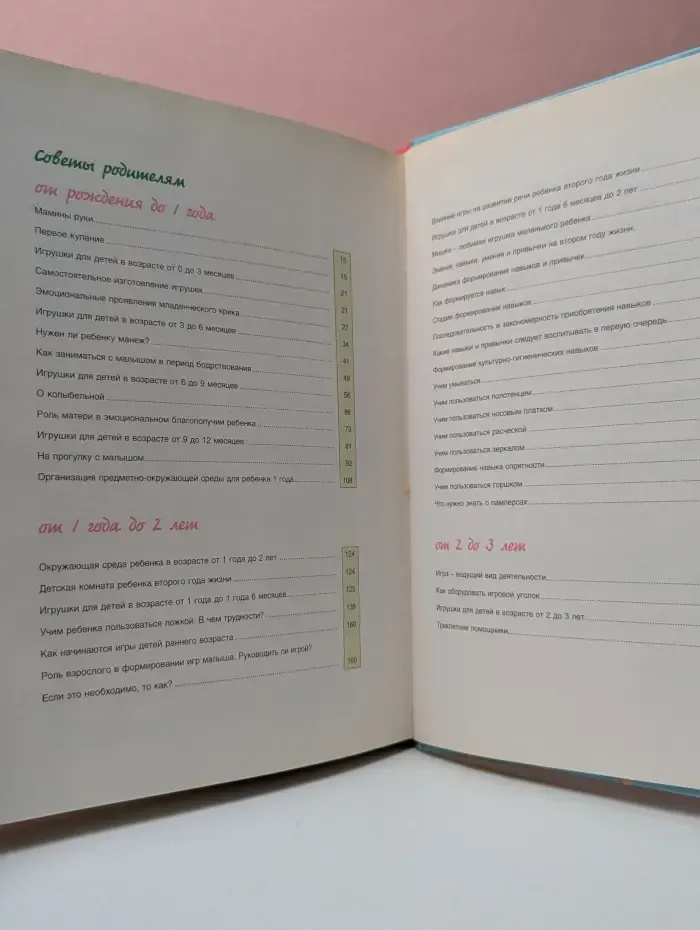 Советы родителям
от рождения до 1 года
Мамины руки 15
Первое купание 15
Игрушки для детей в возрасте от 0 до 3 месяцев 21
Самостоятельное изготовление игрушек 21
Эмоциональные проявления младенческого крика 27
Игрушки для детей в возрасте от 3 до 6 месяцев 34
Нужен ли ребенку манеж? 41
Как заниматься с малышом в период бодрствования 49
Игрушки для детей в возрасте от 6 до 9 месяцев 56
О колыбельной 66
Роль матери в эмоциональном благополучии ребенка 73
Игрушки для детей в возрасте от 9 до 12 месяцев 81
На прогулку с малышом 92
Организация предметно-окружающей среды для ребенка 1 года 108
от 1 года до 2 лет
Окружающая среда ребенка в возрасте от 1 года до 2 лет 124
Детская комната ребенка второго года жизни 124
Игрушки для детей в возрасте от 1 года до 1 года 6 месяцев 125
Учим ребенка пользоваться ложкой. В чем трудности? 139
Как начинаются игры детей раннего возраста 160
Роль взрослого в формировании игр малыша. Руководить ли игрой?
Если это необходимо, то как? 160
Влияние игры на развитие речи ребенка второго года жизни
Игрушки для детей в возрасте от 1 года 6 месяцев до 2 лет
Мишка – любимая игрушка маленького ребенка
Знания, навыки, умения и привычки на втором году жизни.
Динамика формирования навыков и привычек
Как формируется навык
Стадии формирования навыков
Последовательность и закономерность приобретения навыков
Какие навыки и привычки следует воспитывать в первую очередь
Формирование культурно-гигиенических навыков
Учим умываться
Учим пользоваться полотенцем
Учим пользоваться носовым платком
Учим пользоваться расческой
Учим пользоваться зеркалом
Формирование навыка опрятности
Учим пользоваться горшком
Что нужно знать о памперсах
от 2 до 3 лет
Игра – ведущий вид деятельности
Как оборудовать игровой уголок
Игрушки для детей в возрасте от 2 до 3 лет
Трехлетние помощники